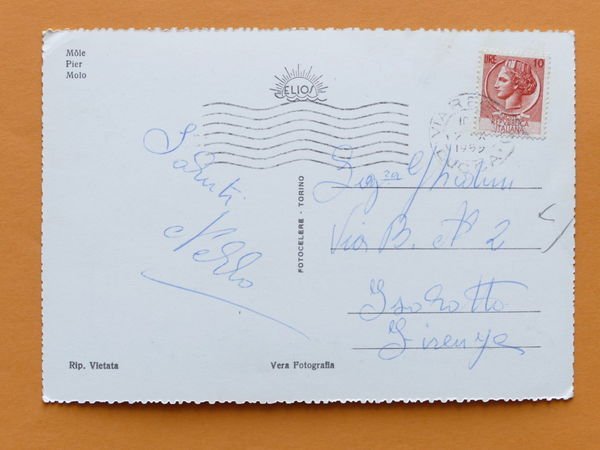 Môle
Pier
Molo
ELIOS
LIRE 10
REPUBBLICA
ITALIANA
VIAREGGIO
1955
Saluti
Nello
FOTOCELERE - TORINO
Via B. N° 2
Isolotto
Firenze
Rip. Vietata
Vera Fotografia